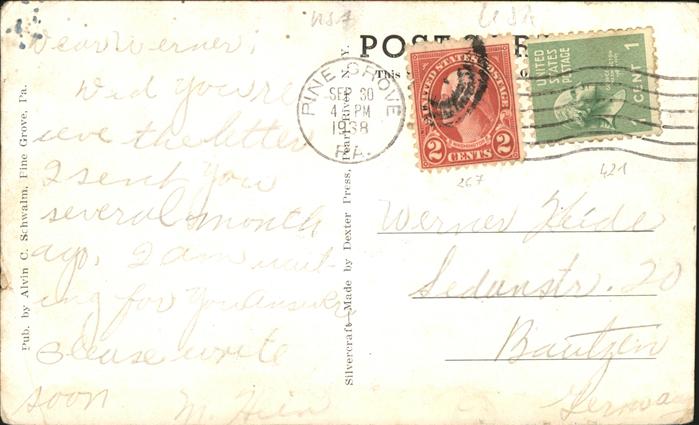 USA
USA
POST CARD
This s
Dear Werner;
Did you re
ieve the letter
I sent you
several month
ago. I am wait-
ing for you answer
Please write
soon
M. Hein
Pub. by Alvin C. Schwalm, Pine Grove, Pa.
Silvercraft—Made by Dexter Press, Pearl River, N. Y.
PINE GROVE
SEP 30
4 PM
1938
PA.
UNITED STATES POSTAGE
2 2
CENTS
UNITED
STATES
POSTAGE
1 CENT 1
267
421
Werner
Sedanstr. 20
Bautzen
Germany